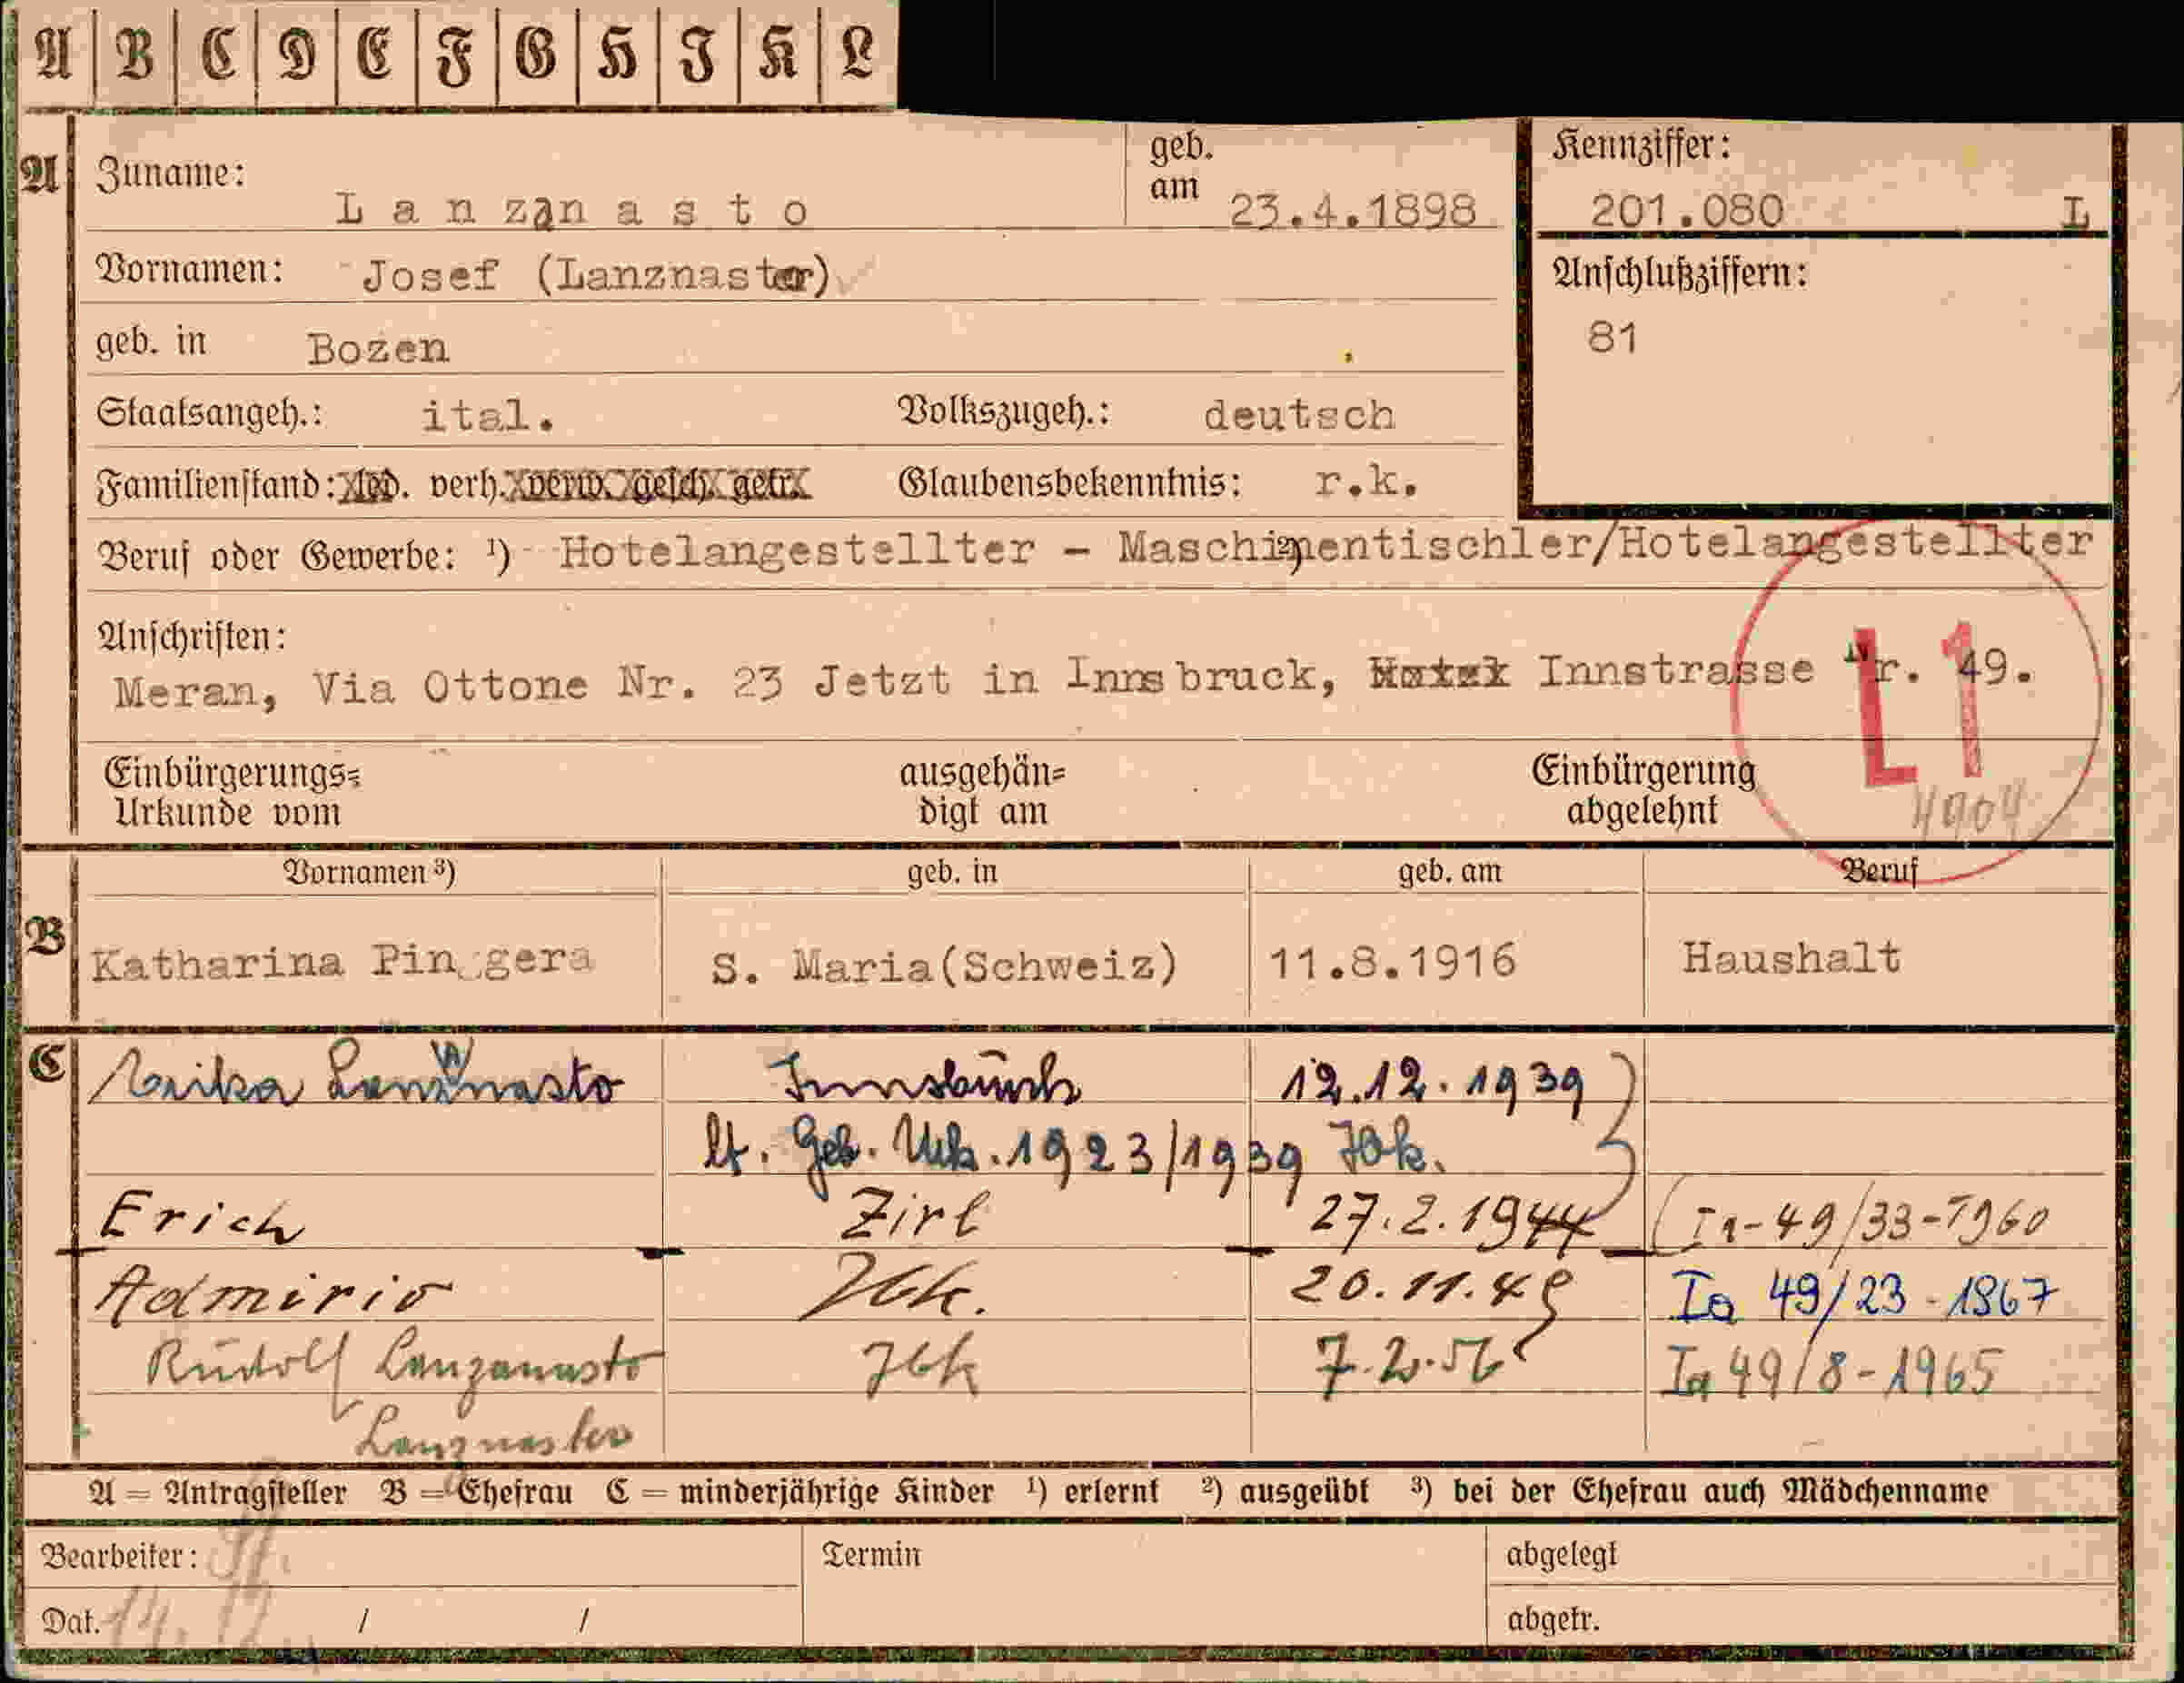 A B C D E F G H I K L
A Zuname: Lanzanasto geb. am 23.4.1898 Kennziffer: 201.080 L
Vornamen: Josef (Lanznaster) Anschlußziffern:
geb. in Bozen 81
Staatsangeh.: ital. Volkszugeh.: deutsch
Familienstand: led. verh. verw. gesch. getr. Glaubensbekenntnis: r.k.
Beruf oder Gewerbe: ¹) Hotelangestellter - Maschinentischler/Hotelangestellter
Anschriften:
Meran, Via Ottone Nr. 23 Jetzt in Innsbruck, Hotel Innstrasse Nr. 49.
L1
Einbürgerungs= ausgehän= Einbürgerung
Urkunde vom digt am abgelehnt 4904
Vornamen ³) geb. in geb. am Beruf
B Katharina Pinggera S. Maria(Schweiz) 11.8.1916 Haushalt
C Lanznasto Innsbruck 12.12.1939
lt. Geb. Urk. 1923/1939 Ibk.
Erich Zirl 27.2.1944 I1-49/33-1960
Admirio Ibk. 20.11.48 Ia 49/23-1967
Rudolf Lanzanasto Ibk 7.2.56 Ia 49/8-1965
Lanznaster
A = Antragsteller B = Ehefrau C = minderjährige Kinder ¹) erlernt ²) ausgeübt ³) bei der Ehefrau auch Mädchenname
Bearbeiter: Termin abgelegt
Dat. 14. 12 / / abgetr.